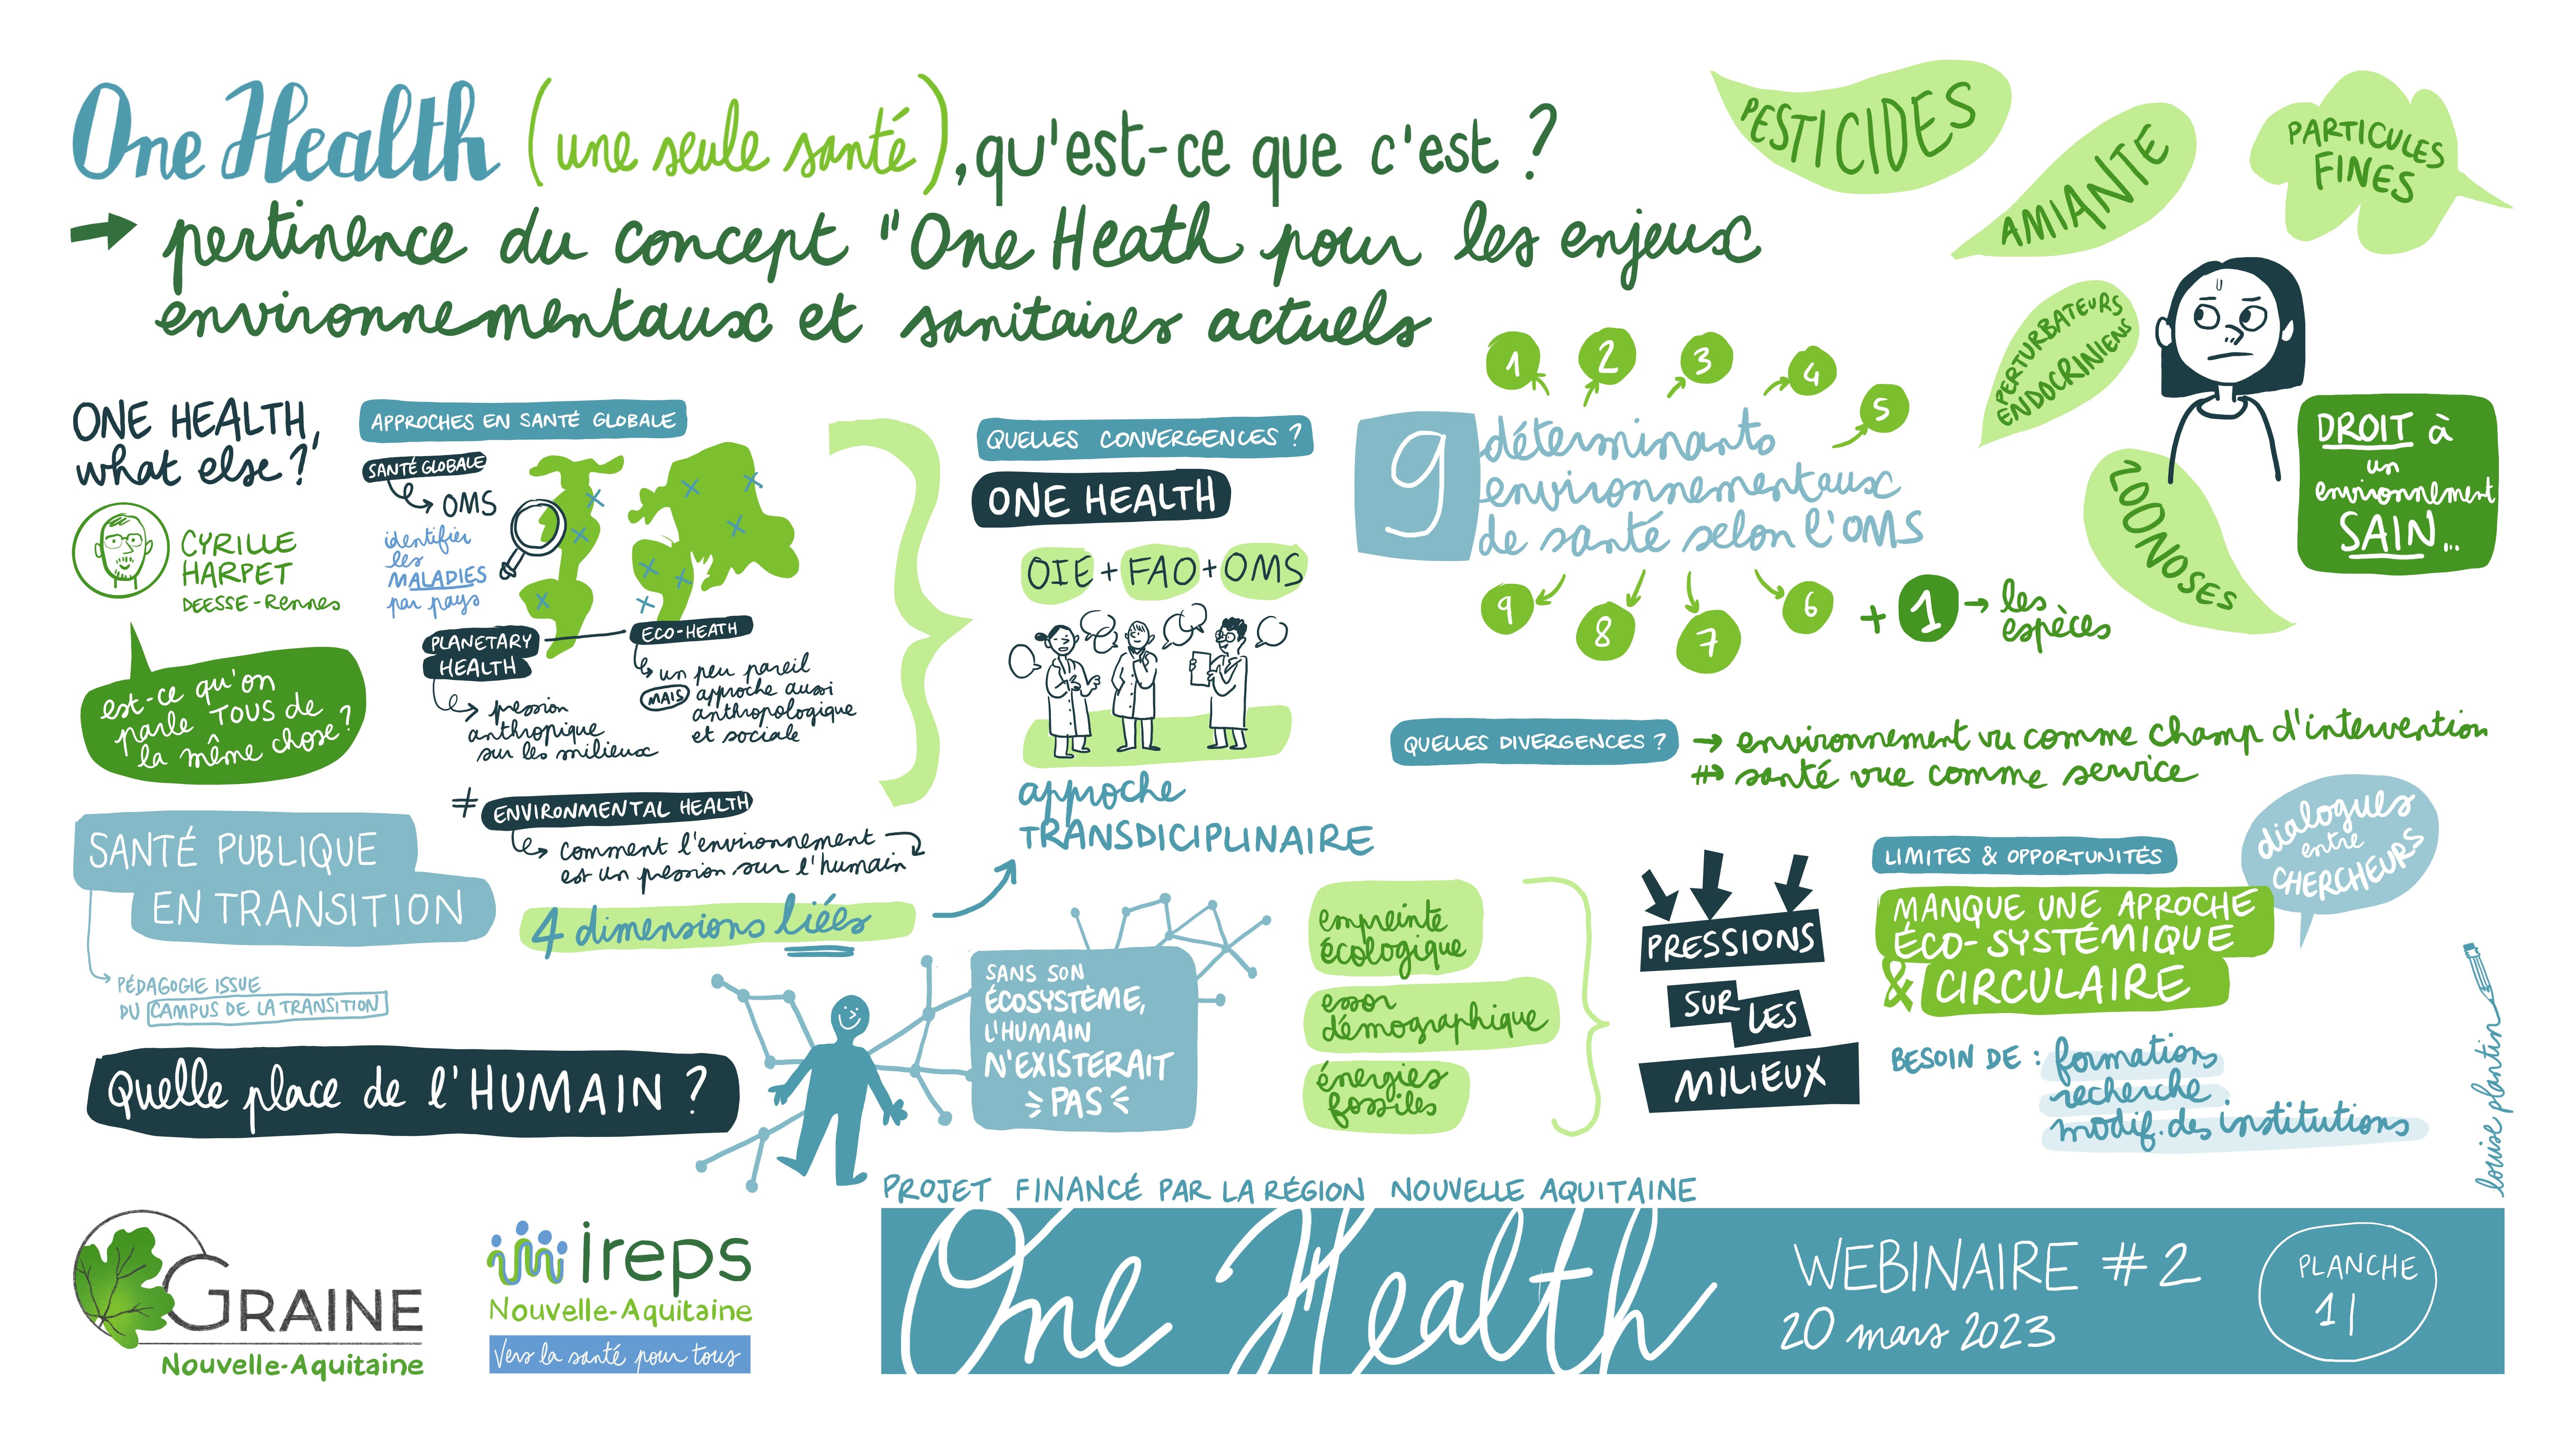 One Health (une seule santé), qu'est-ce que c'est ?
→ pertinence du concept "One Heath pour les enjeux
environnementaux et sanitaires actuels
PESTICIDES
AMIANTE
PARTICULES
FINES
PERTURBATEURS
ENDOCRINIENS
ZOONOSES
DROIT à
un
environnement
SAIN...
ONE HEALTH,
what else ?
CYRILLE
HARPET
DEESSE-Rennes
est-ce qu'on
parle TOUS de
la même chose ?
APPROCHES EN SANTÉ GLOBALE
SANTÉ GLOBALE
→ OMS
identifier
les
MALADIES
par pays
PLANETARY
HEALTH
→ pression
anthropique
sur les milieux
ECO-HEATH
→ un peu pareil
MAIS approche aussi
anthropologique
et sociale
≠ ENVIRONMENTAL HEALTH
→ comment l'environnement
est un pression sur l'humain
4 dimensions liées
QUELLES CONVERGENCES ?
ONE HEALTH
OIE + FAO + OMS
approche
TRANSDICIPLINAIRE
1
2
3
4
5
9 déterminants
environnementaux
de santé selon l'OMS
9
8
7
6
+ 1 → les
espèces
QUELLES DIVERGENCES ?
→ environnement vu comme champ d'intervention
≠> santé vue comme service
SANTÉ PUBLIQUE
EN TRANSITION
→ PÉDAGOGIE ISSUE
DU CAMPUS DE LA TRANSITION
Quelle place de l'HUMAIN ?
SANS SON
ÉCOSYSTÈME,
L'HUMAIN
N'EXISTERAIT
PAS
empreinte
écologique
essor
démographique
énergies
fossiles
PRESSIONS
SUR LES
MILIEUX
LIMITES & OPPORTUNITÉS
dialogues
entre
CHERCHEURS
MANQUE UNE APROCHE
ÉCO-SYSTÉMIQUE
& CIRCULAIRE
BESOIN DE : formations
recherche
modif. des institutions
louise plantin
GRAINE
Nouvelle-Aquitaine
ireps
Nouvelle-Aquitaine
Vers la santé pour tous
PROJET FINANCÉ PAR LA RÉGION NOUVELLE AQUITAINE
One Health
WEBINAIRE #2
20 mars 2023
PLANCHE
1|